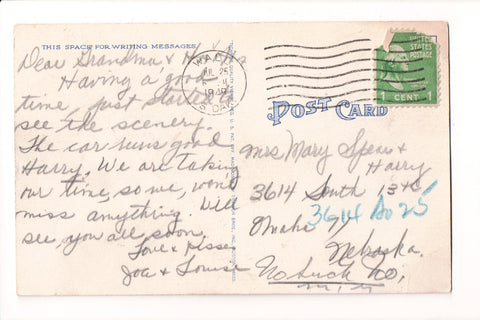 THIS SPACE FOR WRITING MESSAGES
Dear Grandma &
Having a good
time, just started to
see the scenery.
The car runs good
Harry. We are taking
our time, so we, wont
miss anything. Will
see, you all soon.
Love & Kisses
Joe & Louise
WALL
JUL 25
1949
S.DAK.
UNITED STATES
POSTAGE
1 CENT 1
POST CARD
Mrs Mary Spear &
Harry
3614 South 13th
3614 So 25
Omaha 7
Nebraska.
No Such No.